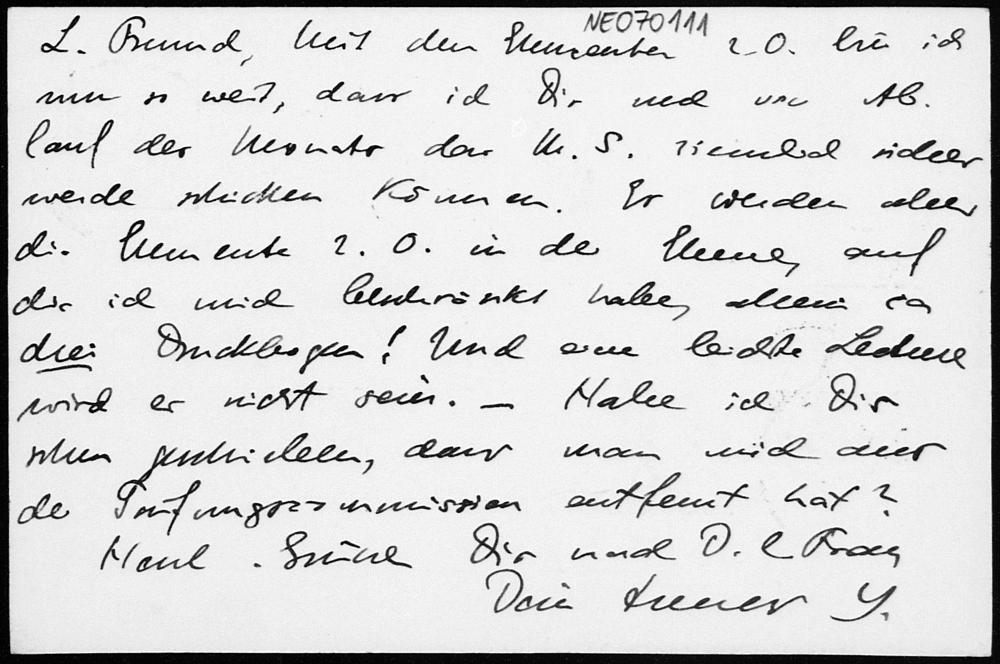 NE070111
L. Freund, Mit den Elementen 2. O. bin ich
nun so weit, dass ich Dir noch vor Ab-
lauf des Monats das M. S. ziemlich sicher
werde schicken können. Es werden aber
die Elemente 2. O. in der Ebene, auf
die ich mich beschränkt habe, allein ca
drei Druckbogen! Und eine leichte Lecture
wird es nicht sein. — Habe ich Dir
schon geschrieben, dass man mich aus
der Prüfungscommission entfernt hat?
Herzl. Grüsse Dir und D. l. Frau
Dein treuer